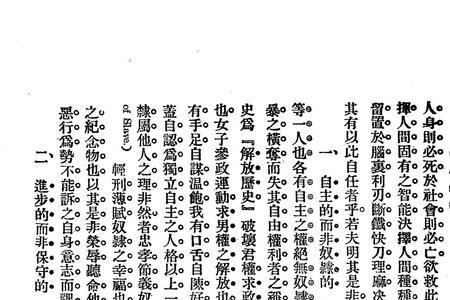 人身則必死於社會則必亡欲救此
揮人間固有之智能決擇人間種種
留置於腦裏利刃斷鐵快刀理麻決
其有以此自任者乎若夫明其是非
一 自主的而非奴隸的
等一人也各有自主之權絕無奴隸
暴之橫奪而失其自由權利者之稱
史爲『解放歷史』破壞君權求政
也女子參政運動求男權之解放也
有手足自謀溫飽我有口舌自陳好
蓋自認爲獨立自主之人格以上一
隸屬他人之理非然者忠孝節義奴
of Slave.)輕刑薄賦奴隸之幸福也
之紀念物也以其是非榮辱聽命他
惡行爲勢不能訴之自身意志而謂
二 進步的而非保守的